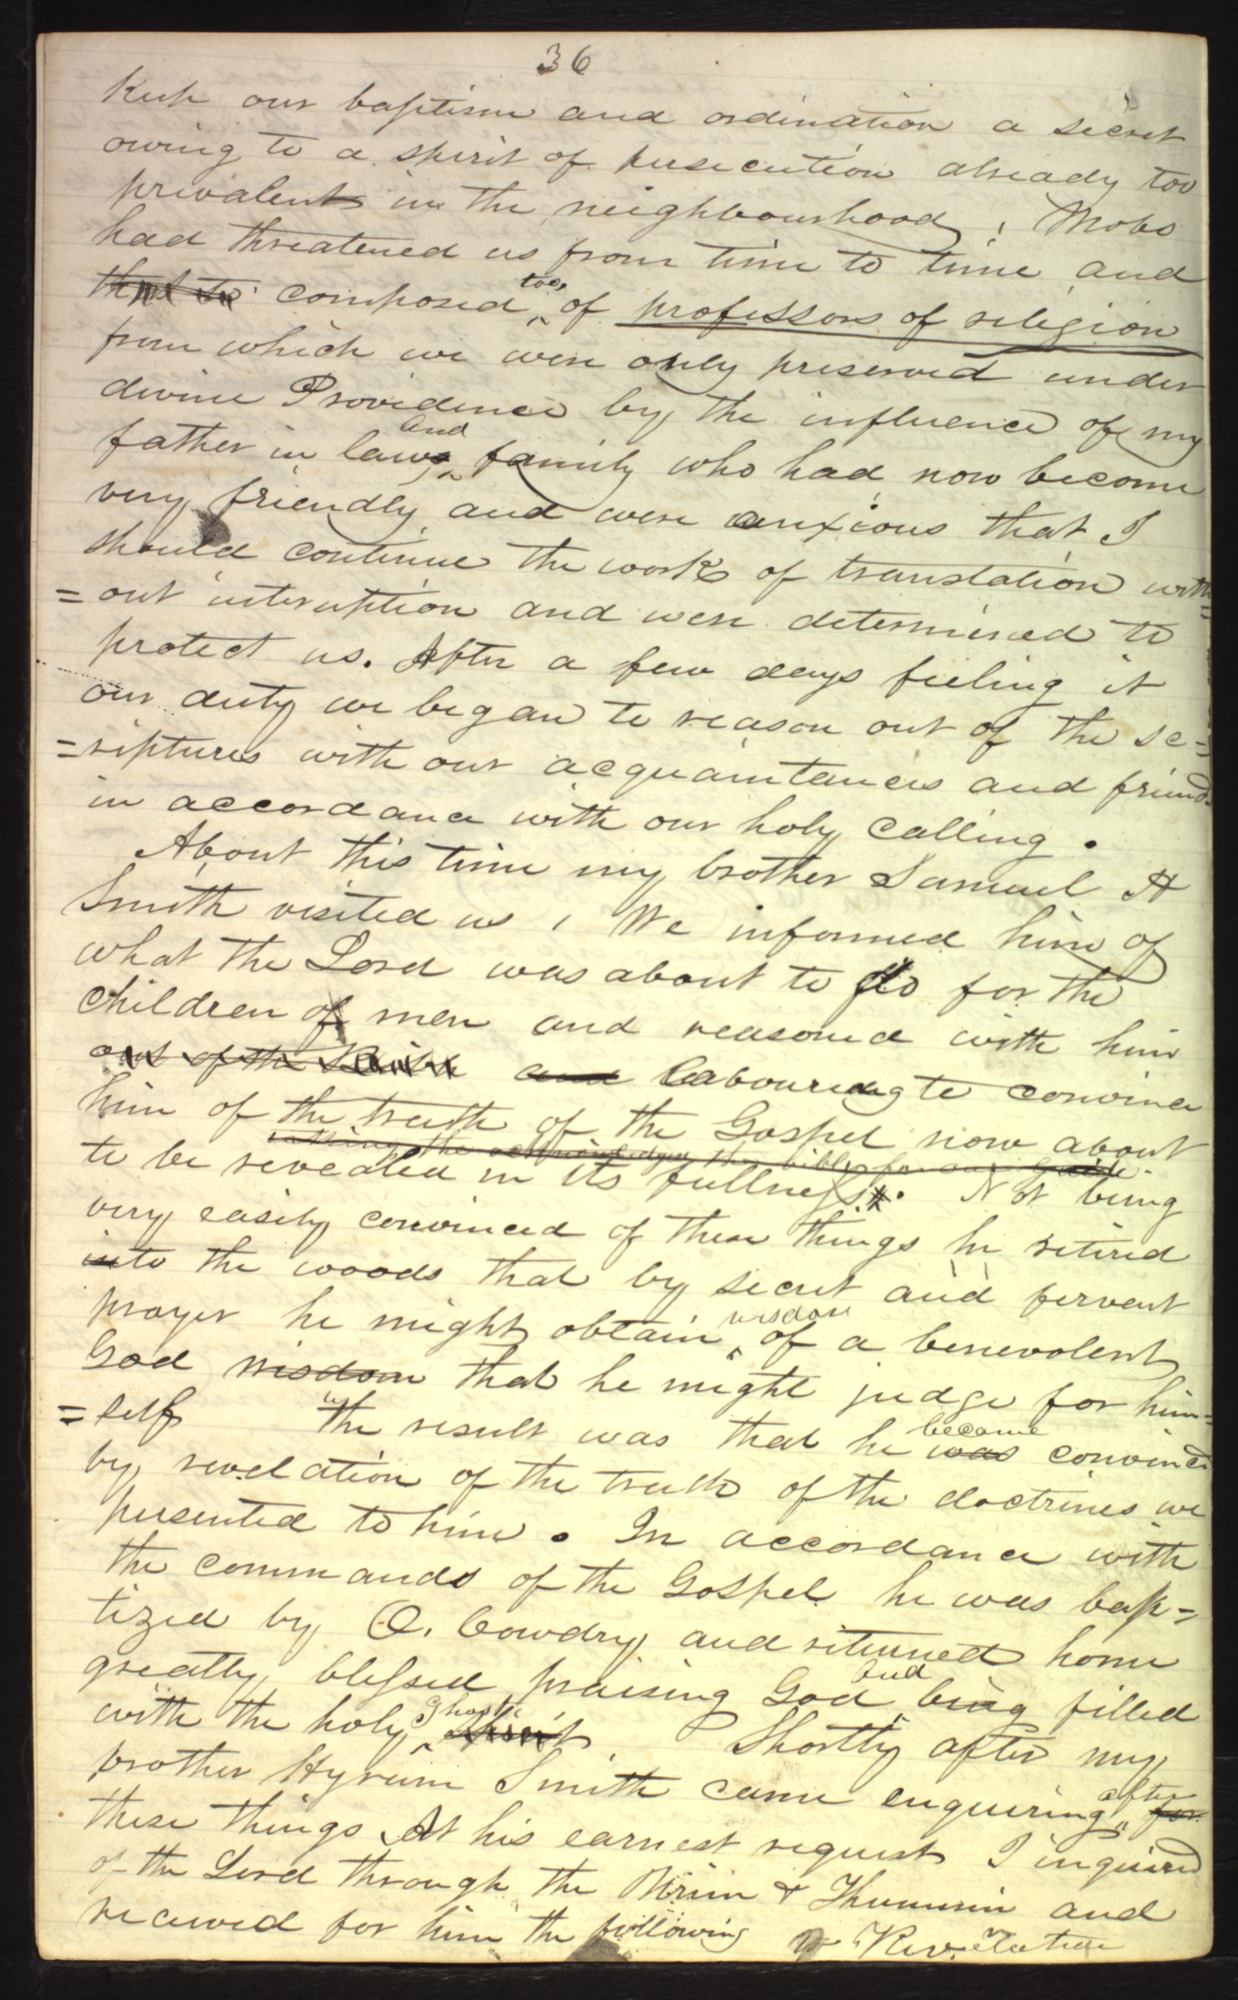 36
Keep our baptism and ordination a secret
owing to a spirit of persecution already too
prevalent in the neighbourhood, Mobs
had threatened us from time to time and
composed too, of professors of religion
from which we were only preserved under
divine Providence by the influence of my
father in laws and family who had now become
very friendly and were anxious that I
should continue the work of translation with
=out interruption and were determined to
protect us. After a few days feeling it
our duty we began to reason out of the sc=
=riptures with our acquaintances and friends
in accordance with our holy calling.
About this time my brother Samuel H
Smith visited us, We informed him of
what the Lord was about to do for the
children of men and reasoned with him
out of the and labouring to convince
him of the truth of the Gospel now about
taking the acknowledged the bible for our guide
to be revealed in its fullness. Not being
very easily convinced of these things he retired
into the woods that by secret and fervent
prayer he might obtain wisdom of a benevolent
God wisdom that he might judge for him=
=self the result was that he became was convinced
by revelation of the truth of the doctrines we
presented to him. In accordance with
the commands of the Gospel he was bap=
tized by O. Cowdry and returned home
greatly blessed praising God and being filled
with the holy Ghost Spirit. Shortly after my
brother Hyrum Smith came enquiring after for
these things At his earnest request I inquired
of the Lord through the Urim & Thummin and
received for him the following Revelation